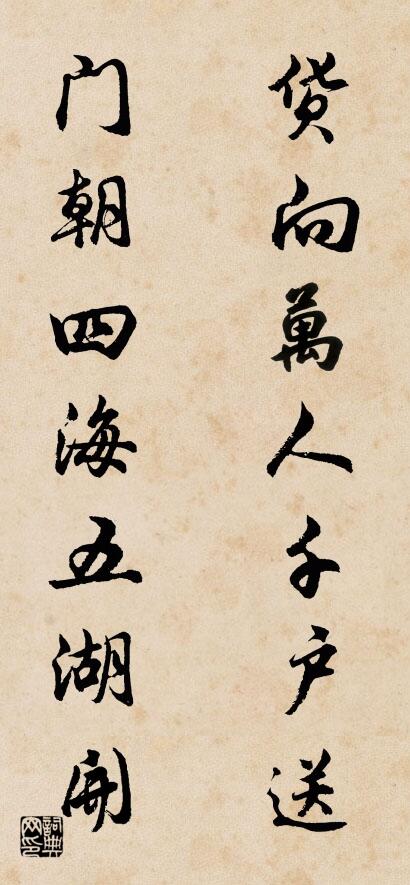 货向萬人千户送
门朝四海五湖開
詞典网印